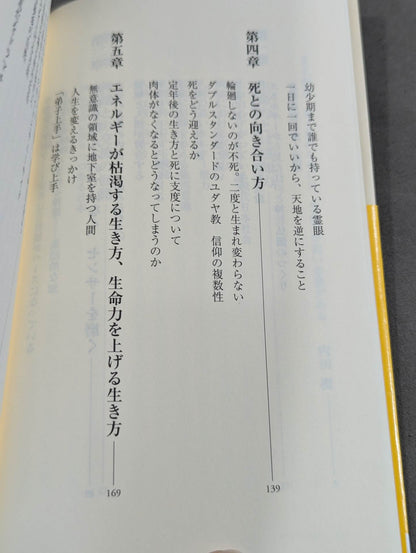 幼少期まで誰でも持っている霊眼
一日に一回でいいから、天地を逆にすること
第四章 死との向き合い方 139
輪廻しないのが不死。二度と生まれ変わらない
ダブルスタンダードのユダヤ教 信仰の複数性
死をどう迎えるか
定年後の生き方と死に支度について
肉体がなくなるとどうなってしまうのか
第五章 エネルギーが枯渇する生き方、生命力を上げる生き方 169
無意識の領域に地下室を持つ人間
人生を変えるきっかけ
「弟子上手」は学び上手